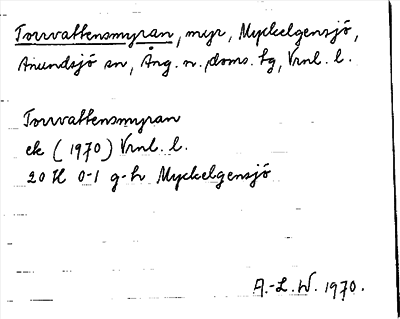 Torrvattensmyran, myr, Myckelgensjö,
Anundsjö sn, Ång. n. doms. tg, Vrnl. l.
Torrvattensmyran
ek (1970) Vrnl. l.
20 H 0-1 g-h Myckelgensjö
A.-L. W. 1970.